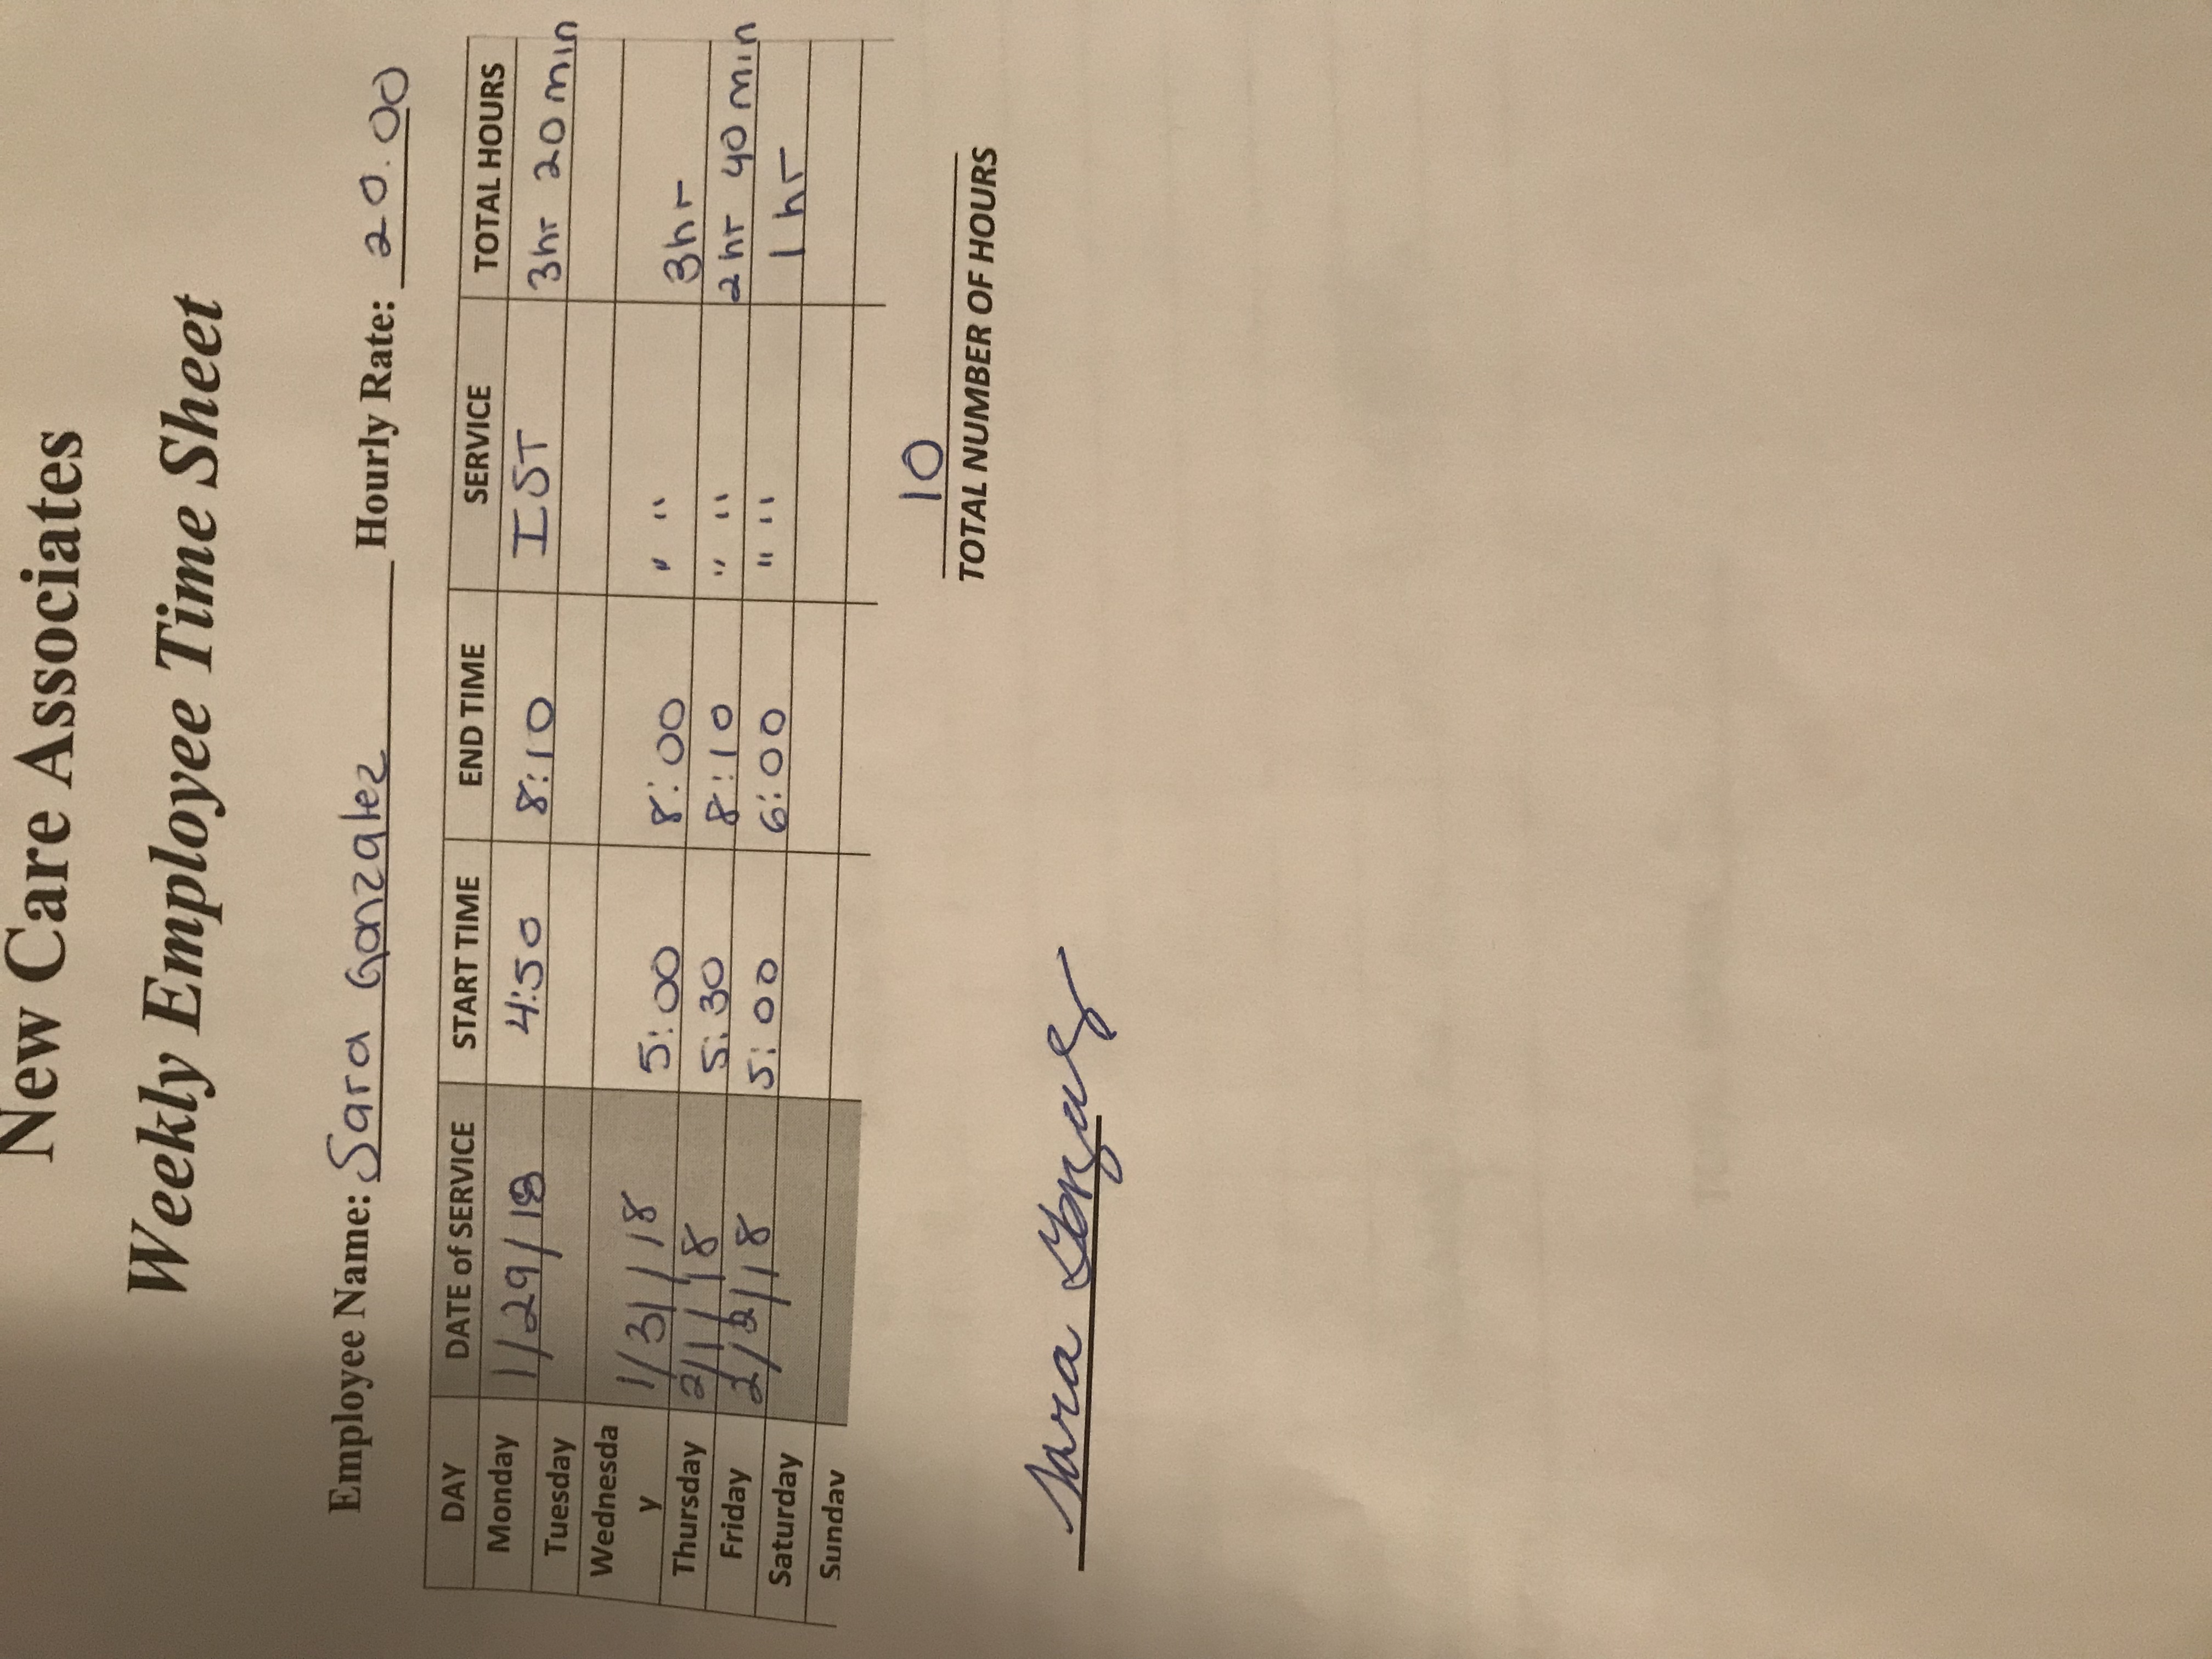 New Care Associates
Weekly Employee Time Sheet
Employee Name: Sara Gonzalez Hourly Rate: 20.00
DAY DATE of SERVICE START TIME END TIME SERVICE TOTAL HOURS
Monday 1/29/18 4:50 8:10 IST 3hr 20 min
Tuesday
Wednesda
y 1/31/18 5:00 8:00 " " 3hr
Thursday 2/1/18 5:30 8:10 " " 2 hr 40 min
Friday 2/2/18 5:00 6:00 " " 1 hr
Saturday
Sunday
10
TOTAL NUMBER OF HOURS
Sara Gonzalez